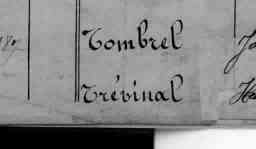 Tombrel
Trévinal